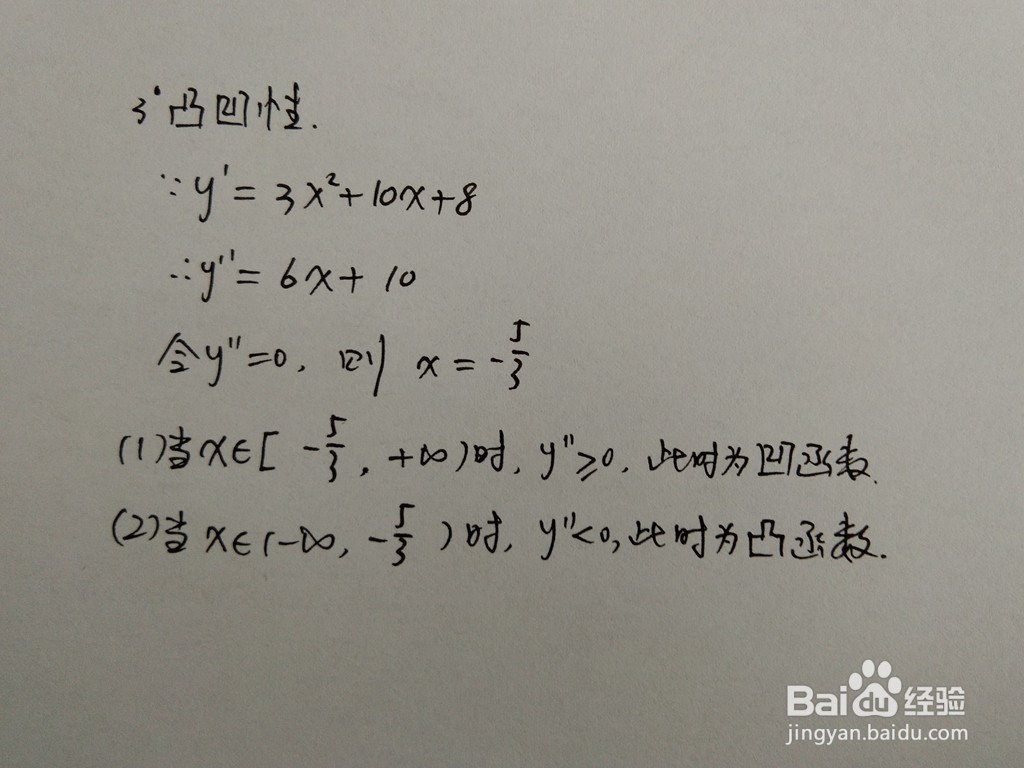 3° 凸凹性.
∵ y' = 3x²+10x+8
∴ y'' = 6x+10
令y''=0, 则 x = -5/3
(1)当x∈[ -5/3, +∞)时, y''≥0, 此时为凹函数.
(2)当x∈(-∞, -5/3)时, y''<0, 此时为凸函数.
Baidu 经验
jingyan.baidu.com